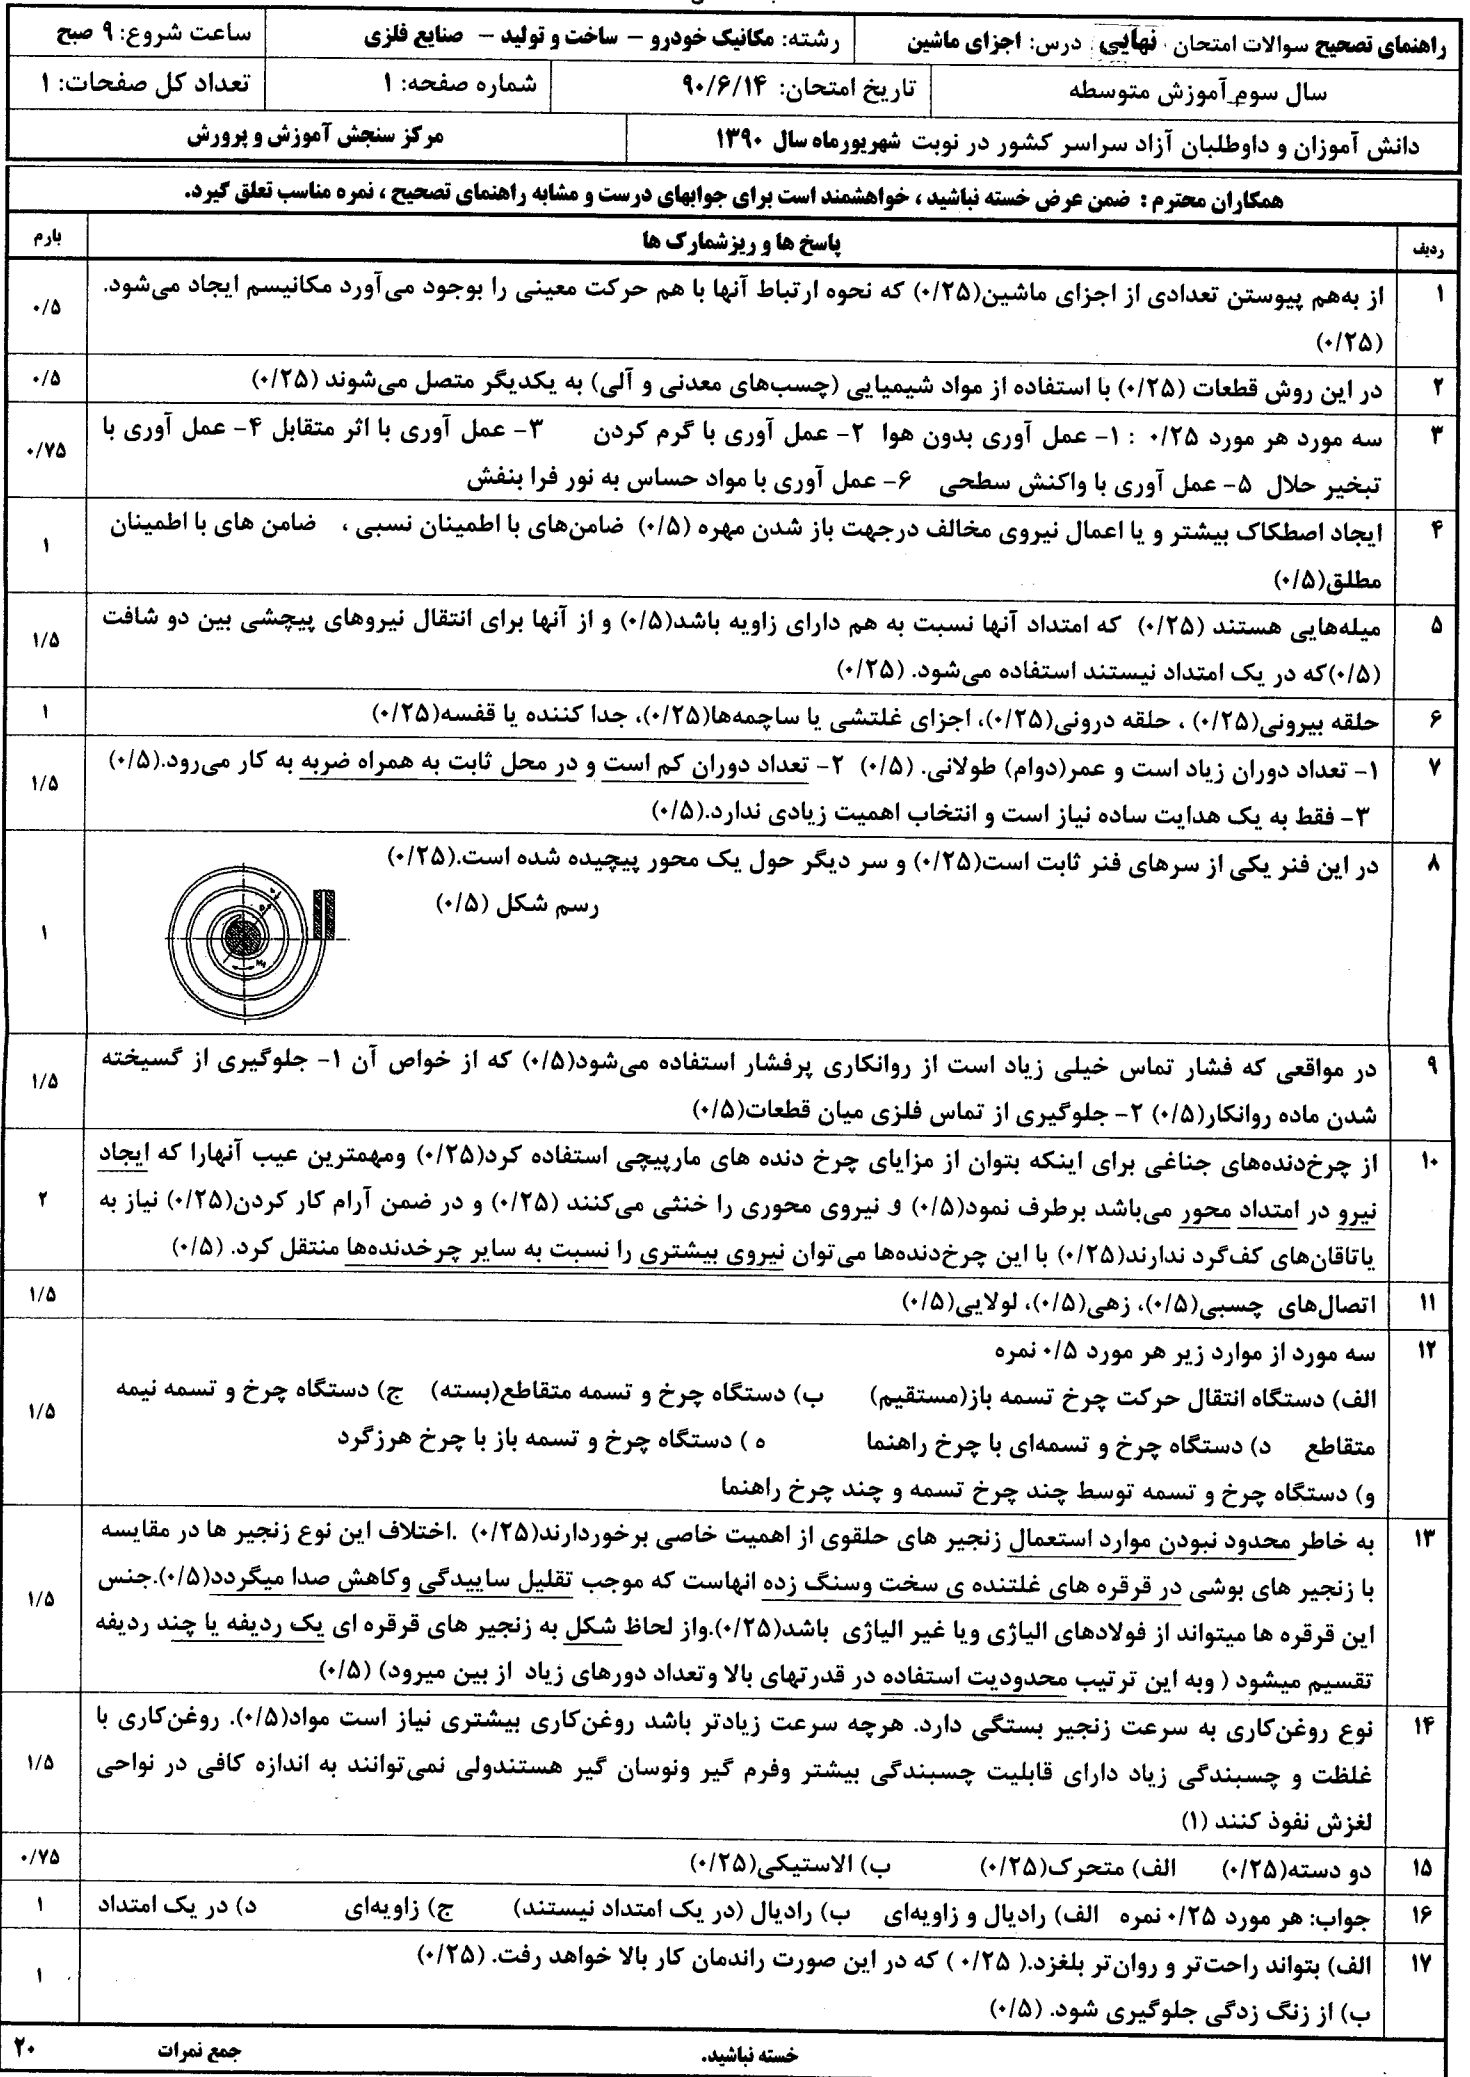 راهنمای تصحیح سوالات امتحان نهایی درس: اجزای ماشین
رشته: مکانیک خودرو – ساخت و تولید – صنایع فلزی
ساعت شروع: ۹ صبح
سال سوم آموزش متوسطه
تاریخ امتحان: ۹۰/۶/۱۴
شماره صفحه: ۱
تعداد کل صفحات: ۱
دانش آموزان و داوطلبان آزاد سراسر کشور در نوبت شهریورماه سال ۱۳۹۰
مرکز سنجش آموزش و پرورش
همکاران محترم : ضمن عرض خسته نباشید ، خواهشمند است برای جوابهای درست و مشابه راهنمای تصحیح ، نمره مناسب تعلق گیرد.
ردیف پاسخ ها و ریزشمارک ها بارم
۱ از به‌هم پیوستن تعدادی از اجزای ماشین(۰/۲۵) که نحوه ارتباط آنها با هم حرکت معینی را بوجود می‌آورد مکانیسم ایجاد می‌شود. ۰/۵
(۰/۲۵)
۲ در این روش قطعات (۰/۲۵) با استفاده از مواد شیمیایی (چسب‌های معدنی و آلی) به یکدیگر متصل می‌شوند (۰/۲۵) ۰/۵
۳ سه مورد هر مورد ۰/۲۵ : ۱- عمل آوری بدون هوا ۲- عمل آوری با گرم کردن ۳- عمل آوری با اثر متقابل ۴- عمل آوری با ۰/۷۵
تبخیر حلال ۵- عمل آوری با واکنش سطحی ۶- عمل آوری با مواد حساس به نور فرا بنفش
۴ ایجاد اصطکاک بیشتر و یا اعمال نیروی مخالف درجهت باز شدن مهره (۰/۵) ضامن‌های با اطمینان نسبی ، ضامن های با اطمینان ۱
مطلق(۰/۵)
۵ میله‌هایی هستند (۰/۲۵) که امتداد آنها نسبت به هم دارای زاویه باشد(۰/۵) و از آنها برای انتقال نیروهای پیچشی بین دو شافت ۱/۵
(۰/۵)که در یک امتداد نیستند استفاده می‌شود. (۰/۲۵)
۶ حلقه بیرونی(۰/۲۵) ، حلقه درونی(۰/۲۵)، اجزای غلتشی یا ساچمه‌ها(۰/۲۵)، جدا کننده یا قفسه(۰/۲۵) ۱
۷ ۱- تعداد دوران زیاد است و عمر(دوام) طولانی. (۰/۵) ۲- تعداد دوران کم است و در محل ثابت به همراه ضربه به کار می‌رود.(۰/۵) ۱/۵
۳- فقط به یک هدایت ساده نیاز است و انتخاب اهمیت زیادی ندارد.(۰/۵)
۸ در این فنر یکی از سرهای فنر ثابت است(۰/۲۵) و سر دیگر حول یک محور پیچیده شده است.(۰/۲۵) ۱
رسم شکل (۰/۵)
۹ در مواقعی که فشار تماس خیلی زیاد است از روانکاری پرفشار استفاده می‌شود(۰/۵) که از خواص آن ۱- جلوگیری از گسیخته ۱/۵
شدن ماده روانکار(۰/۵) ۲- جلوگیری از تماس فلزی میان قطعات(۰/۵)
۱۰ از چرخ‌دنده‌های جناغی برای اینکه بتوان از مزایای چرخ دنده های مارپیچی استفاده کرد(۰/۲۵) ومهمترین عیب آنهارا که ایجاد ۲
نیرو در امتداد محور می‌باشد برطرف نمود(۰/۵) و نیروی محوری را خنثی می‌کنند (۰/۲۵) و در ضمن آرام کار کردن(۰/۲۵) نیاز به
یاتاقان‌های کف‌گرد ندارند(۰/۲۵) با این چرخ‌دنده‌ها می‌توان نیروی بیشتری را نسبت به سایر چرخدنده‌ها منتقل کرد. (۰/۵)
۱۱ اتصال‌های چسبی(۰/۵)، زهی(۰/۵)، لولایی(۰/۵) ۱/۵
۱۲ سه مورد از موارد زیر هر مورد ۰/۵ نمره ۱/۵
الف) دستگاه انتقال حرکت چرخ تسمه باز(مستقیم) ب) دستگاه چرخ و تسمه متقاطع(بسته) ج) دستگاه چرخ و تسمه نیمه
متقاطع د) دستگاه چرخ و تسمه‌ای با چرخ راهنما ه ) دستگاه چرخ و تسمه باز با چرخ هرزگرد
و) دستگاه چرخ و تسمه توسط چند چرخ تسمه و چند چرخ راهنما
۱۳ به خاطر محدود نبودن موارد استعمال زنجیر های حلقوی از اهمیت خاصی برخوردارند(۰/۲۵) .اختلاف این نوع زنجیر ها در مقایسه ۱/۵
با زنجیر های بوشی در قرقره های غلتنده ی سخت وسنگ زده انهاست که موجب تقلیل ساییدگی وکاهش صدا میگردد(۰/۵).جنس
این قرقره ها میتواند از فولادهای الیاژی ویا غیر الیاژی باشد(۰/۲۵).واز لحاظ شکل به زنجیر های قرقره ای یک ردیفه یا چند ردیفه
تقسیم میشود ( وبه این ترتیب محدودیت استفاده در قدرتهای بالا وتعداد دورهای زیاد از بین میرود) (۰/۵)
۱۴ نوع روغن‌کاری به سرعت زنجیر بستگی دارد. هرچه سرعت زیادتر باشد روغن‌کاری بیشتری نیاز است مواد(۰/۵). روغن‌کاری با ۱/۵
غلظت و چسبندگی زیاد دارای قابلیت چسبندگی بیشتر وفرم گیر ونوسان گیر هستندولی نمی‌توانند به اندازه کافی در نواحی
لغزش نفوذ کنند (۱)
۱۵ دو دسته(۰/۲۵) الف) متحرک(۰/۲۵) ب) الاستیکی(۰/۲۵) ۰/۷۵
۱۶ جواب: هر مورد ۰/۲۵ نمره الف) رادیال و زاویه‌ای ب) رادیال (در یک امتداد نیستند) ج) زاویه‌ای د) در یک امتداد ۱
۱۷ الف) بتواند راحت‌تر و روان‌تر بلغزد.( ۰/۲۵ ) که در این صورت راندمان کار بالا خواهد رفت. (۰/۲۵) ۱
ب) از زنگ زدگی جلوگیری شود. (۰/۵)
خسته نباشید. جمع نمرات ۲۰